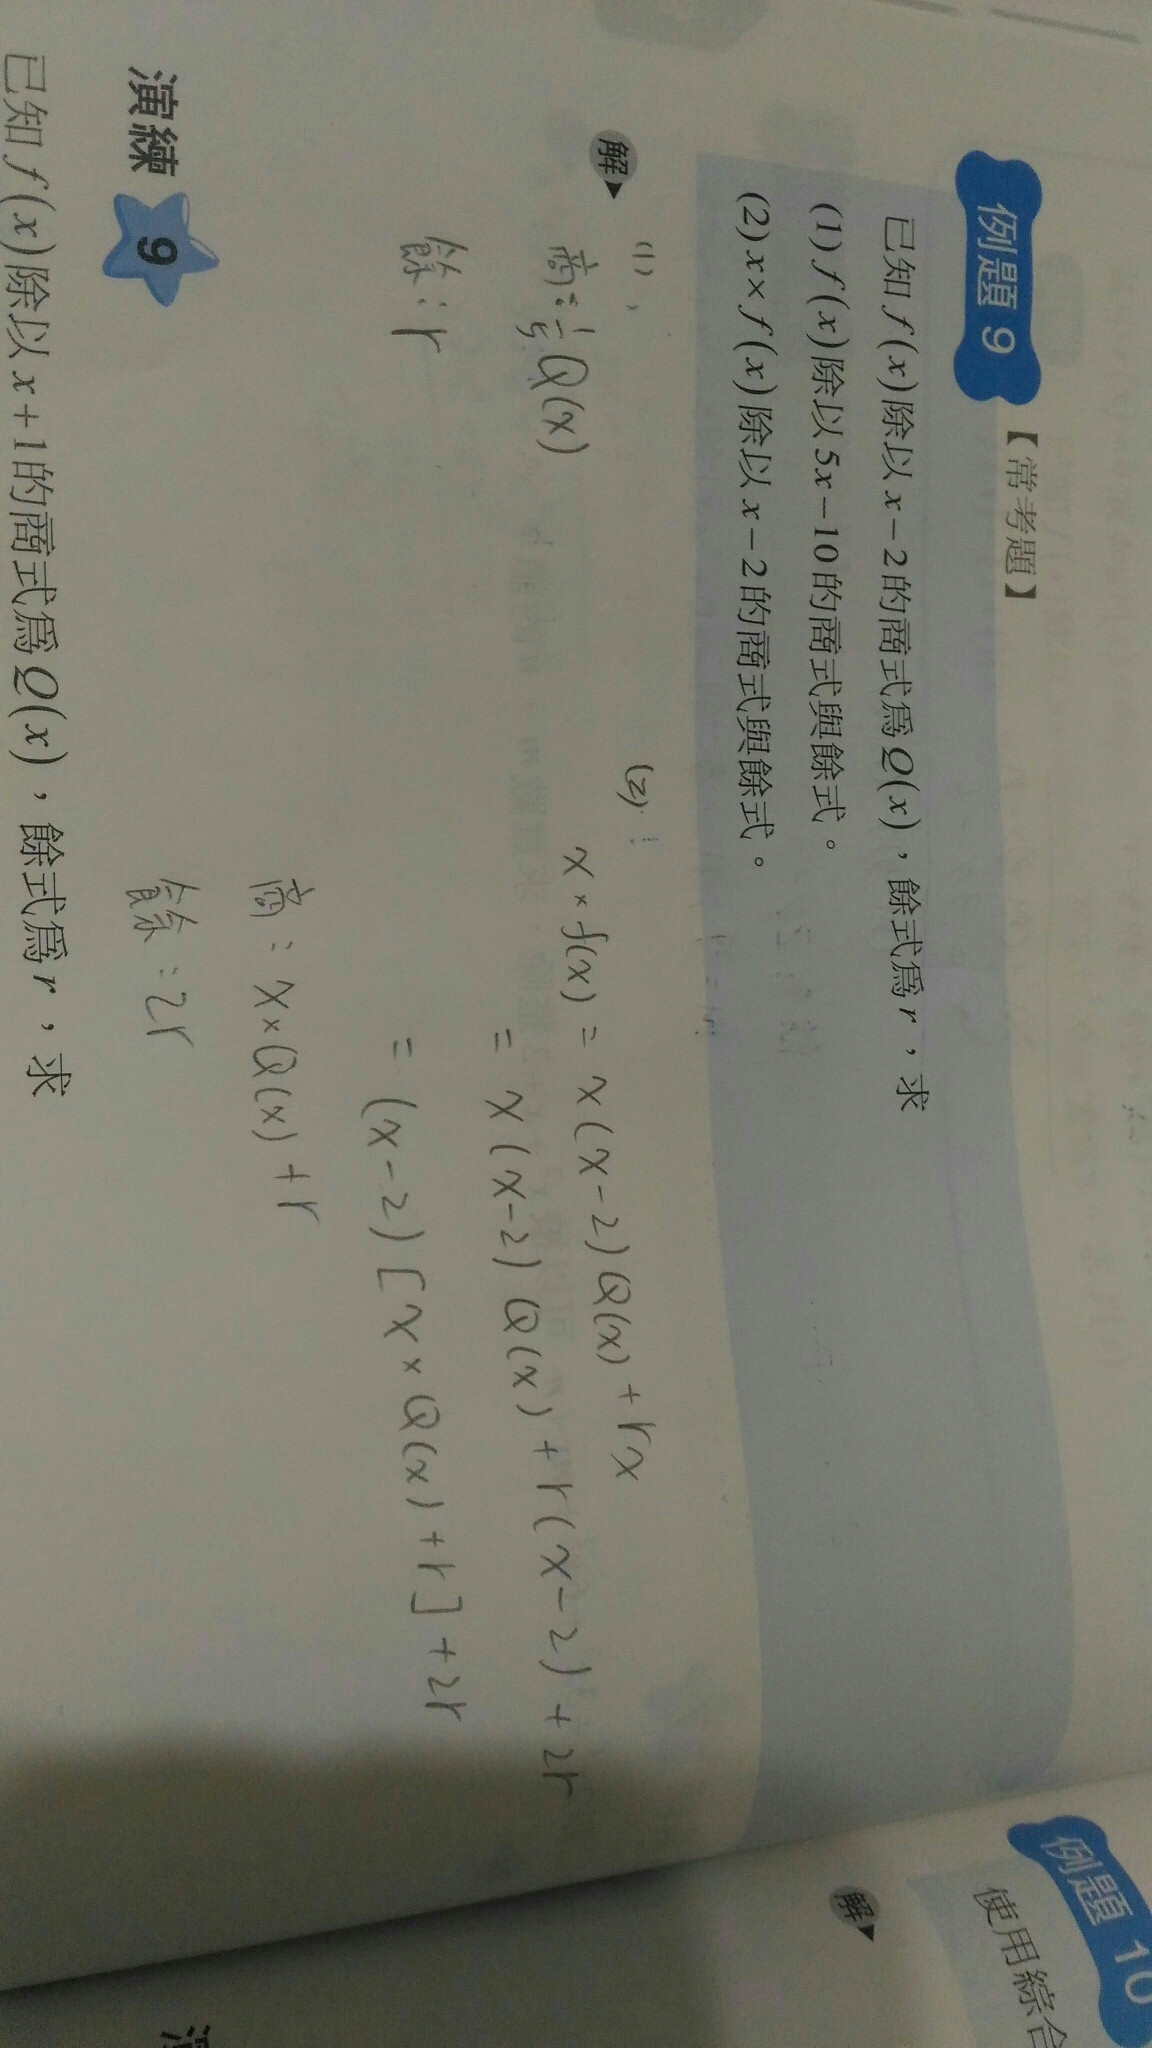 例題 9
【常考題】
已知 f(x) 除以 x－2 的商式為 Q(x)，餘式為 r，求
(1) f(x) 除以 5x－10 的商式與餘式。
(2) x× f(x) 除以 x－2 的商式與餘式。
解
(1)、
商：1/5 Q(x)
餘：r
(2)
x × f(x) = x(x-2)Q(x) + rx
= x(x-2)Q(x) + r(x-2) + 2r
= (x-2)[x × Q(x) + r] + 2r
商：x×Q(x)+r
餘：2r
演練 9
已知 f(x) 除以 x+1 的商式為 Q(x)，餘式為 r，求
例題 10
使用綜合
解